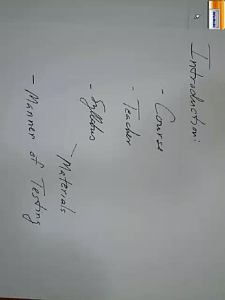 Introduction:
- Course
- Teacher
- Syllabus
- Materials
- Manner of Testing